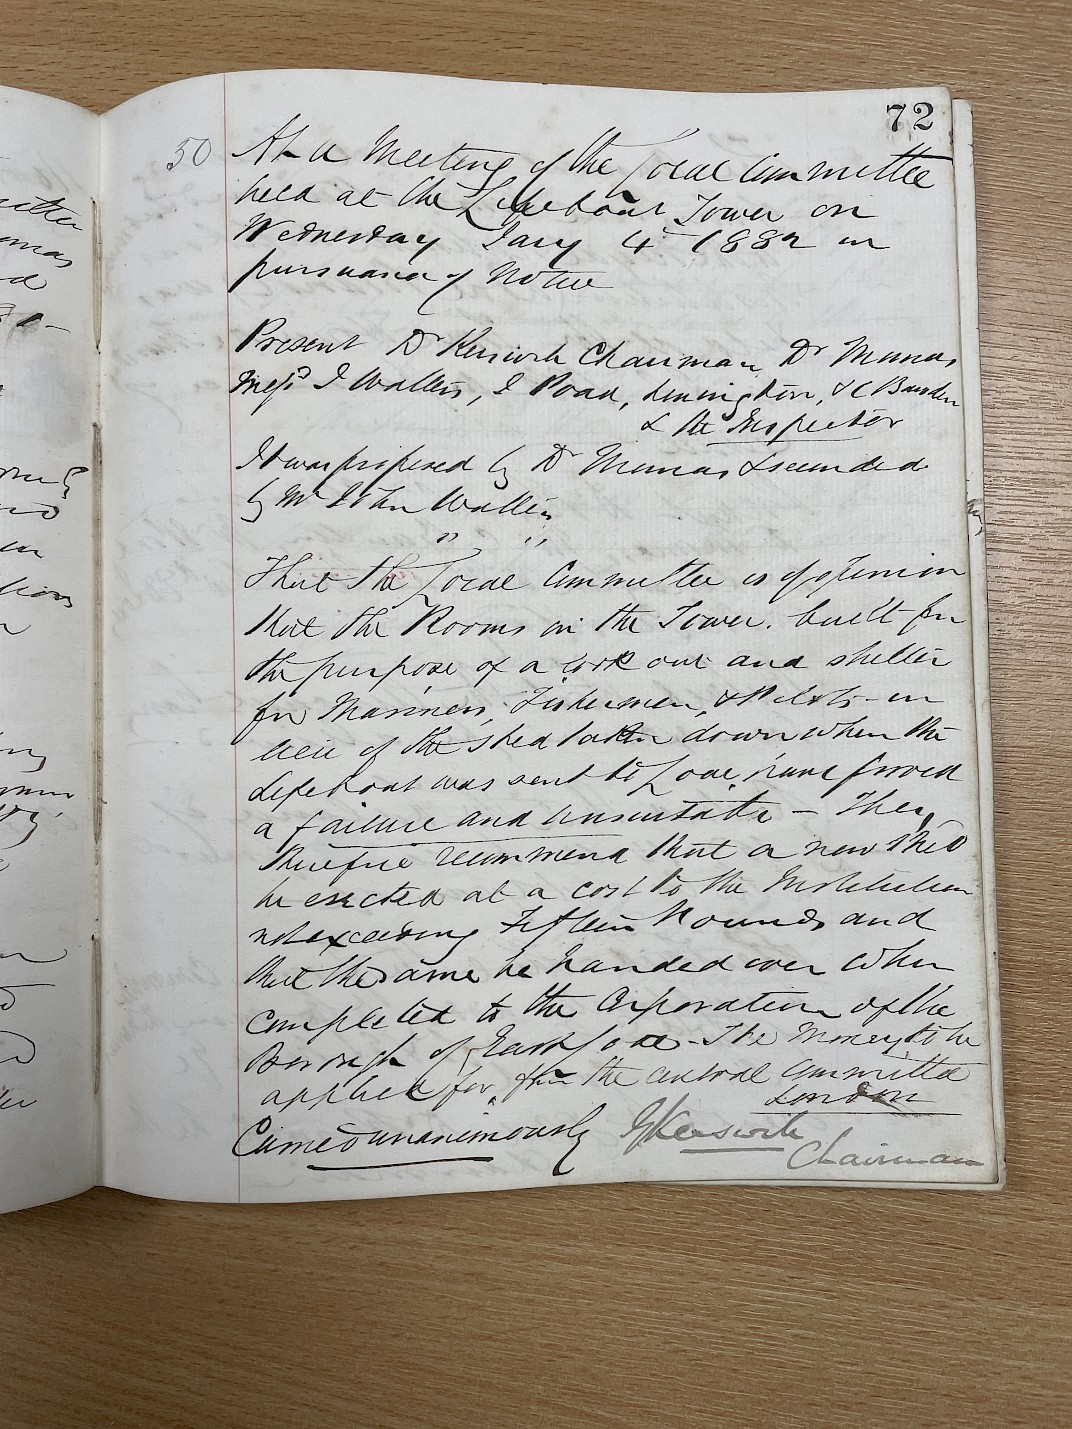 72
50
At a Meeting of the Local Committee
held at the Lifeboat Tower on
Wednesday Jany 4th 1882 in
pursuance of Notice
Present Dr Kenwick Chairman Dr Thomas
Messrs J Walters, J Road, &c
& the Inspector
It was proposed by Dr Thomas & seconded
by Mr John Walters
" "
That the Local Committee is of opinion
that the Rooms in the Tower. built for
the purpose of a look out and shelter
for Mariners, Fishermen, & Pilots in
lieu of the shed taken down when the
Lifeboat was sent to Looe, have proved
a failure and unsuitable – They
therefore recommend that a new Shed
be erected at a cost to the Institution
not exceeding Fifteen Pounds and
that the same be handed over when
completed to the Corporation of the
Borough of East Looe – The Money to be
applied for from the central Committee
London
Carried unanimously
Chairman